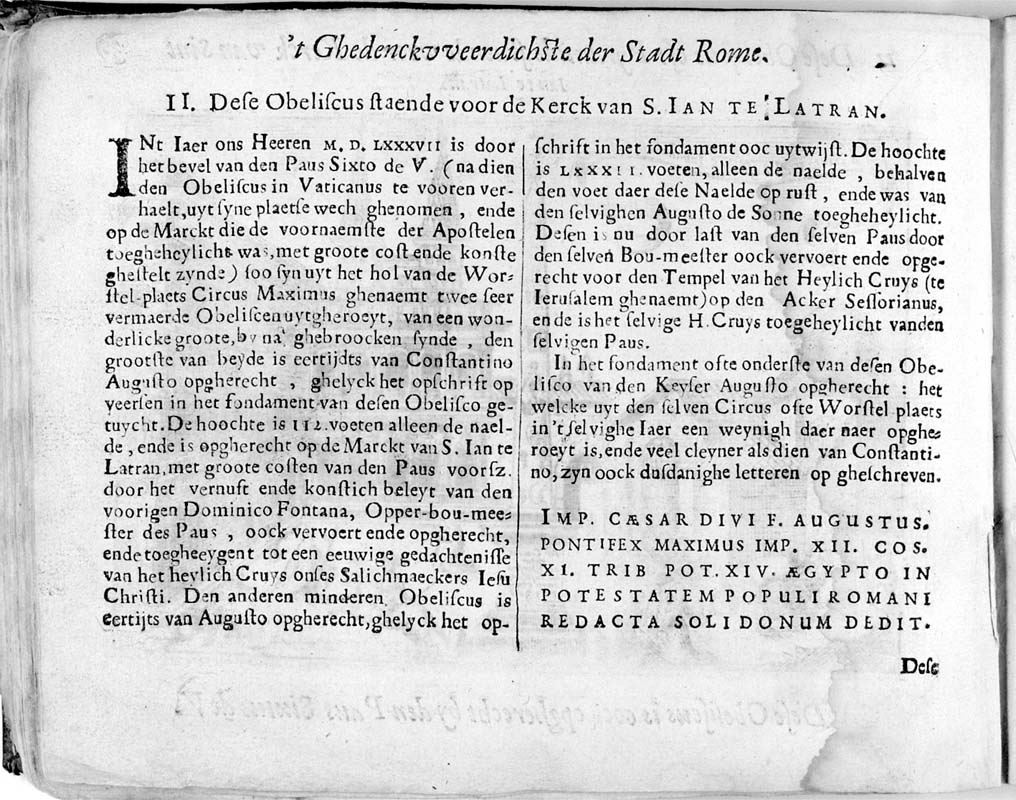 't Ghedenckvveerdichste der Stadt Rome.
II. Dese Obeliscus staende voor de Kerck van S. IAN TE LATRAN.
INt Iaer ons Heeren M. D. LXXXVII is door
het bevel van den Paus Sixto de V. (na dien
den Obeliscus in Vaticanus te vooren ver-
haelt, uyt syne plaetse wech ghenomen, ende
op de Marckt die de voornaemste der Apostelen
toegheheylicht was, met groote cost ende konste
ghestelt zynde) soo syn uyt het hol van de Wor-
stel-plaets Circus Maximus ghenaemt twee seer
vermaerde Obeliscen uytgheroeyt, van een won-
derlicke groote, by na ghebroocken synde, den
grootste van beyde is eertijdts van Constantino
Augusto opgherecht, ghelyck het opschrift op
veersen in het fondament van desen Obelisco ge-
tuycht. De hoochte is 112. voeten alleen de nael-
de, ende is opgherecht op de Marckt van S. Ian te
Latran, met groote costen van den Paus voorsz.
door het vernuft ende konstich beleyt van den
voorigen Dominico Fontana, Opper-bou-mee-
ster des Paus, oock vervoert ende opgherecht,
ende toegheeygent tot een eeuwige gedachtenisse
van het heylich Cruys onses Salichmaeckers Iesu
Christi. Den anderen minderen Obeliscus is
eertijts van Augusto opgherecht, ghelyck het op-
schrift in het fondament ooc uytwijst. De hoochte
is LXXXII. voeten, alleen de naelde, behalven
den voet daer dese Naelde op rust, ende was van
den selvighen Augusto de Sonne toegheheylicht.
Desen is nu door last van den selven Paus door
den selven Bou-meester oock vervoert ende opge-
recht voor den Tempel van het Heylich Cruys (te
Ierusalem ghenaemt) op den Acker Sessorianus,
ende is het selvige H. Cruys toegeheylicht vanden
selvigen Paus.
In het fondament ofte onderste van desen Obe-
lisco van den Keyser Augusto opgherecht : het
welcke uyt den selven Circus ofte Worstel plaets
in 't selvighe Iaer een weynigh daer naer opghe-
roeyt is, ende veel cleyner als dien van Constanti-
no, zyn oock dusdanighe letteren op gheschreven.
IMP. CÆSAR DIVI F. AUGUSTUS.
PONTIFEX MAXIMUS IMP. XII. COS.
XI. TRIB POT. XIV. ÆGYPTO IN
POTESTATEM POPULI ROMANI
REDACTA SOLI DONUM DEDIT.
Dese